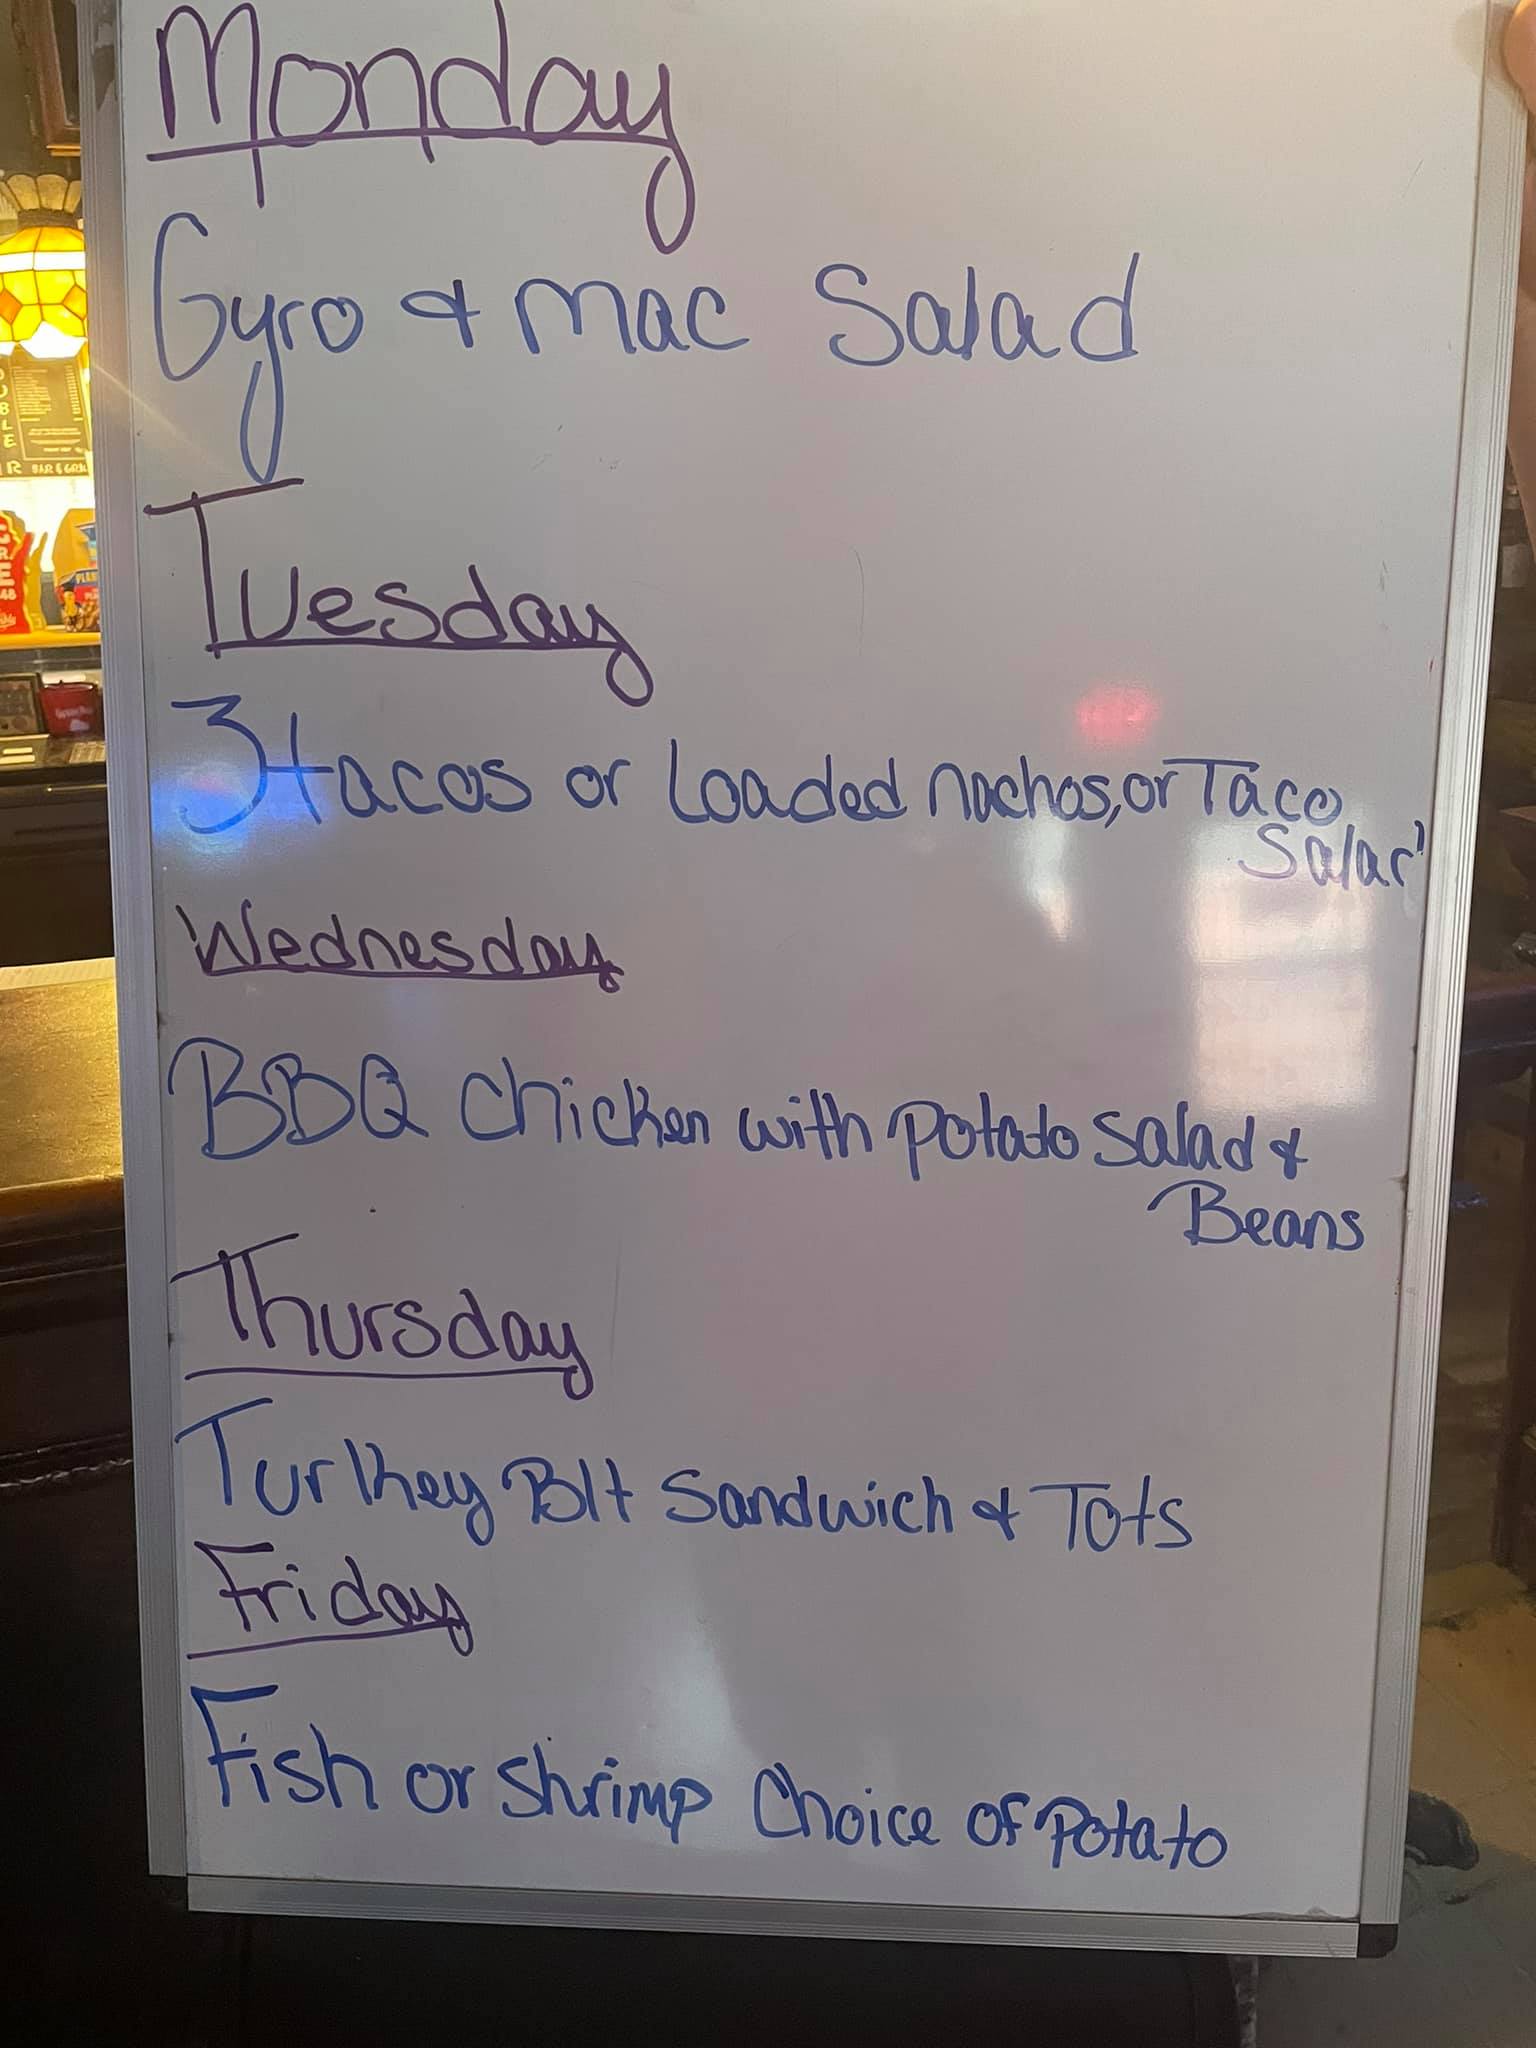 Monday
Gyro & Mac Salad
Tuesday
3 tacos or Loaded nachos, or Taco
Salad
Wednesday
BBQ Chicken with Potato Salad &
Beans
Thursday
Turkey Blt Sandwich & Tots
Friday
Fish or Shrimp Choice of Potato
BAR & GRI